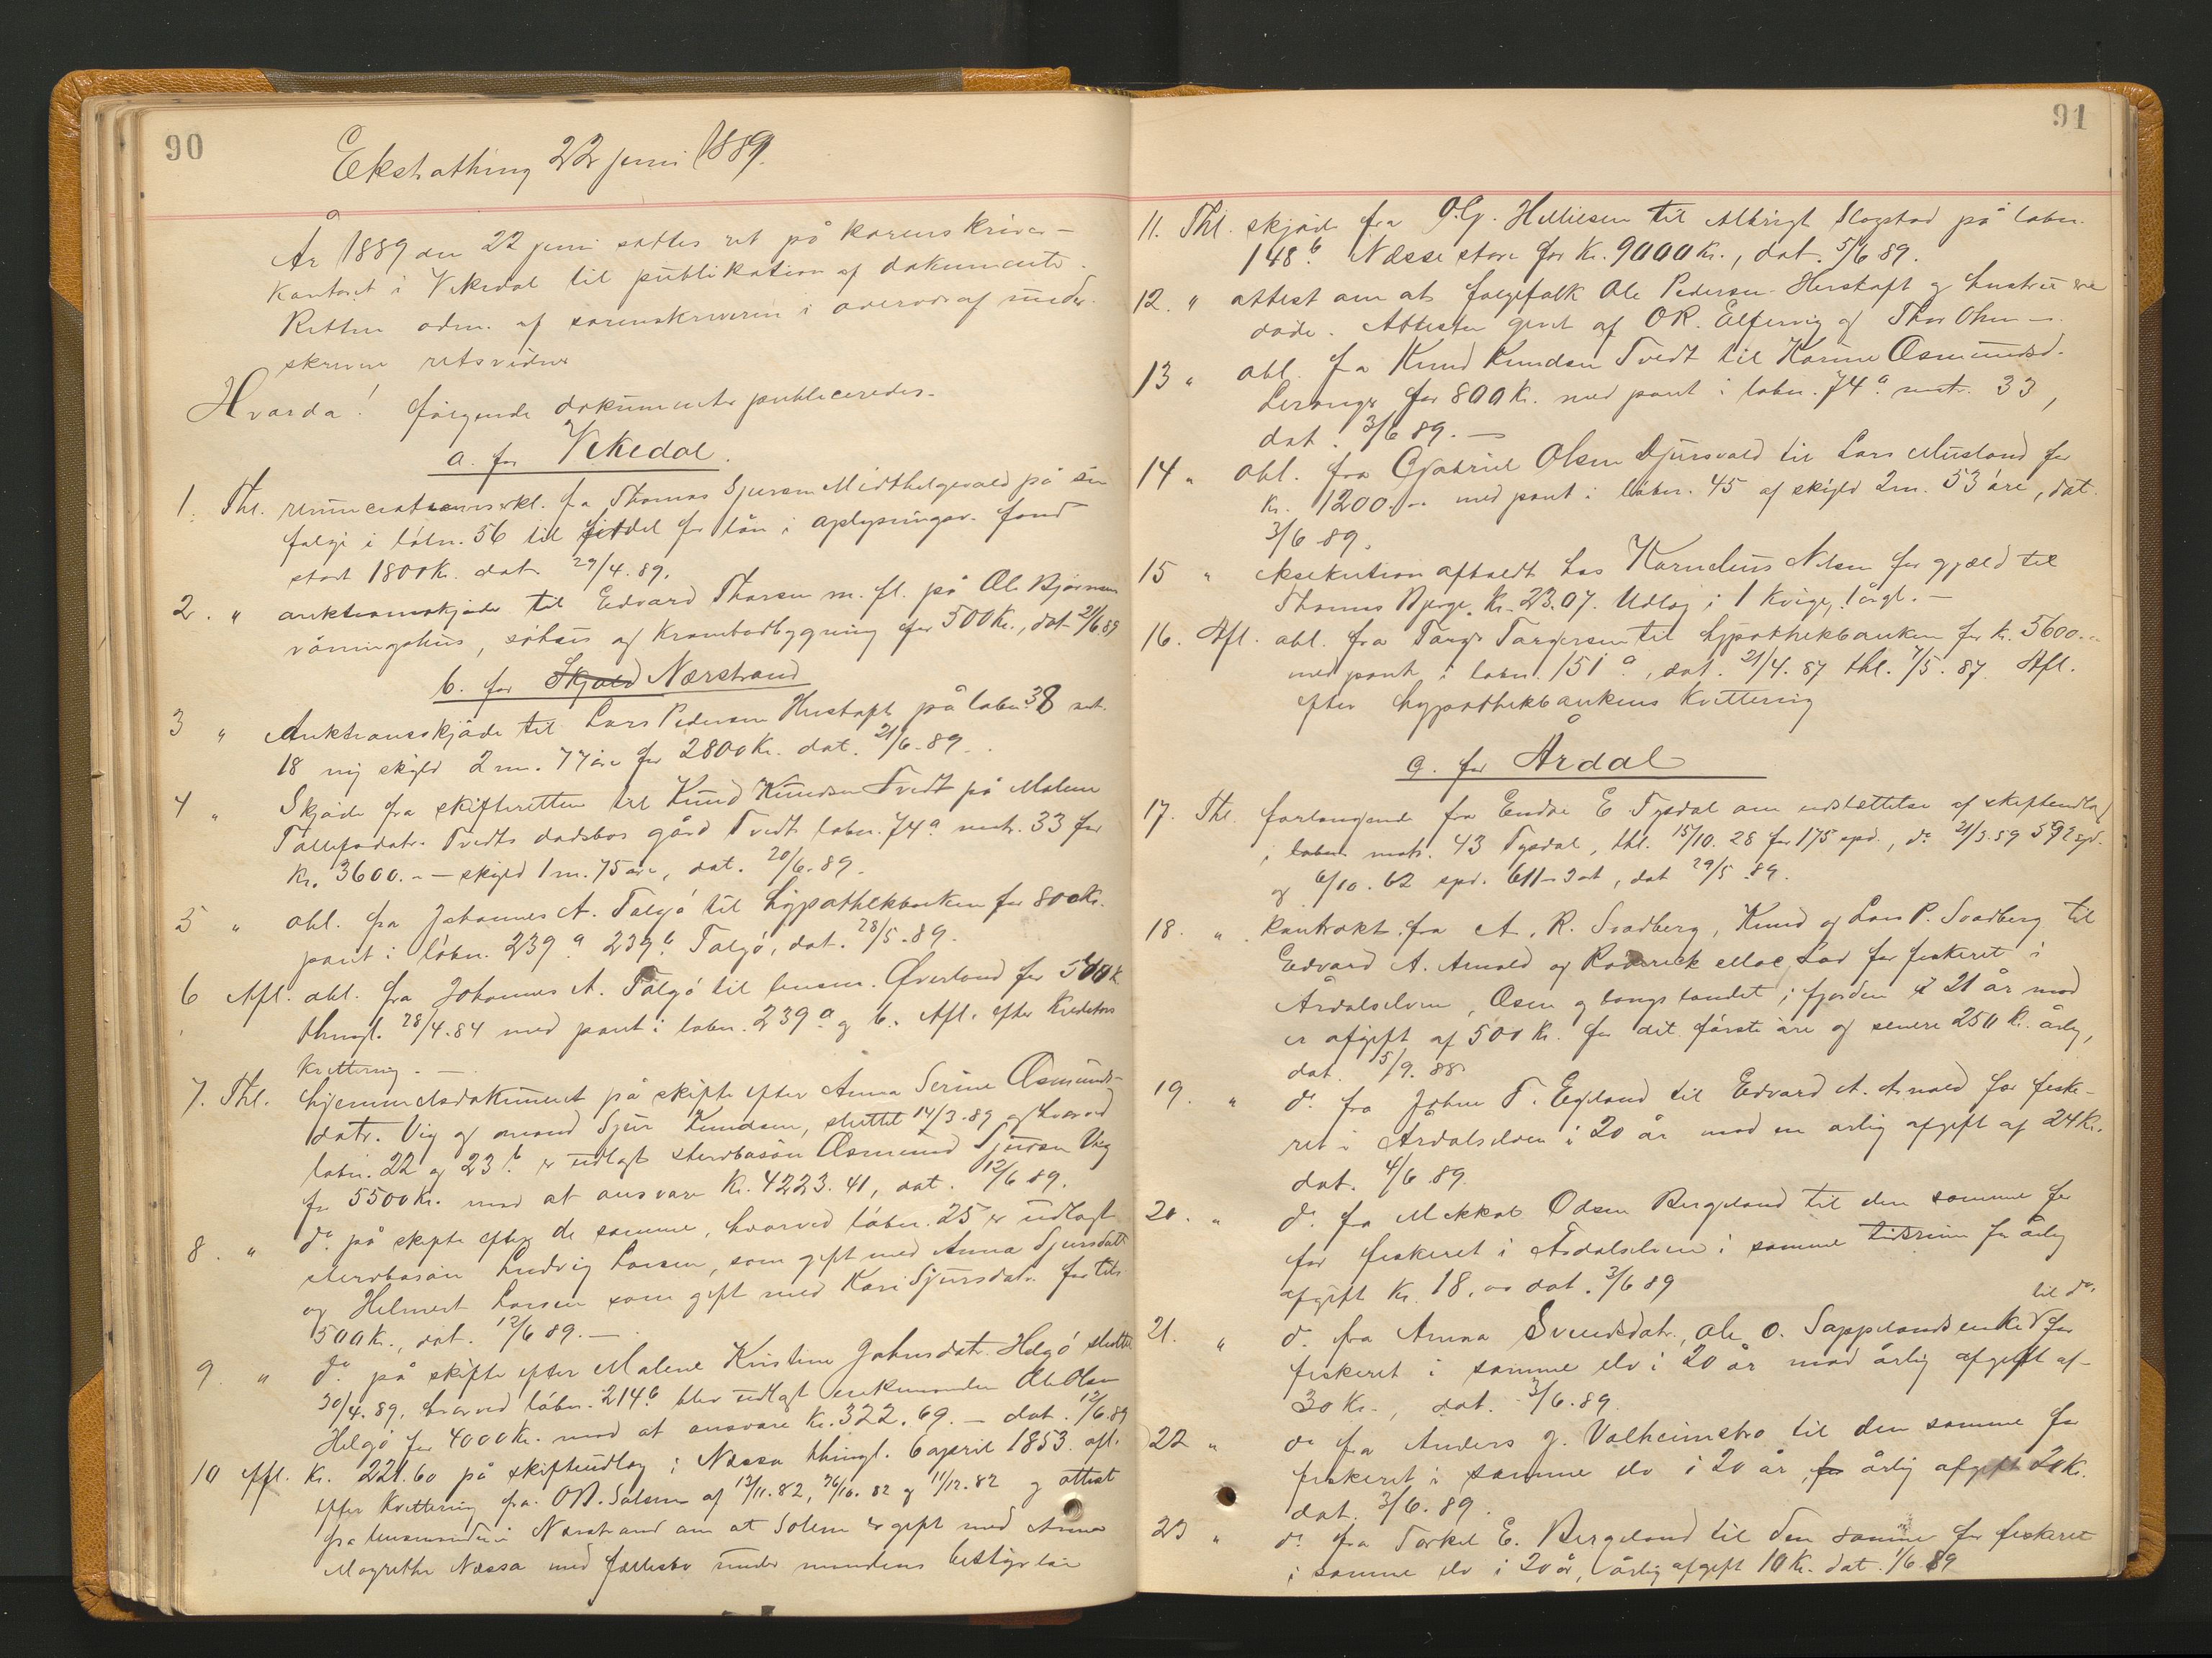 90
Ekstrathing 22 juni 1889.
År 1889 den 22 juni sattes ret på sorenskriver-
kontoret i Vikedal til publikation af dokumenter.
Retten adm. af sorenskriveren i overvær af under-
skrevne retsvidner
Hvorda! følgende dokumenter publiceredes.
a. for Vikedal.
1. Thl. renunciationserkl. fra Thomas Sjursen Midthelgevold på sin
følge i løbn. 56 til fordel for lån i oplysningsv. fond
stort 1800 Kr. dat 29/4.89.
2. " auktionsskjøde til Edvard Thorsen m. fl. på Ole Bjørnsens
våningshus, søhus og krambodbygning for 500 Kr., dat 21/6.89
b. for Skjold Nærstrand
3 " Auktionsskjøde til Lars Pedersen Hustoft på løbn 38 mt.
18 ny skyld 2 m. 77 øre for 2800 Kr. dat. 21/6-89.
4 " Skjøde fra skifteretten til Knud Knudsen Tvedt på Malene
Tollefsdatr. Tvedts dødsbos gård Tvedt løbn. 74a. matr. 33 for
Kr. 3600.- – skyld 1 m. 75 øre, dat. 20/6.89.
5 " obl. fra Johannes A. Talgø til hypothekbanken for 800 Kr.
pant i løbn. 239a 239b Talgø, dat. 28/5.89.
6 Afl. obl. fra Johannes A. Talgø til lensm. Øverland for 500 K
thingl. 28/4.84 med pant i løbn. 239a. og b. Afl. efter Kreditors
kvittering. –
7. Thl. hjemmelsdokument på skifte efter Anna Serine Osmunds-
datr. Vig og mand Sjur Knudsen, sluttet 14/3.89 og hvorved
løbn. 22 og 23b. er udlagt stervbosøn Osmund Sjursen Vig
for 5500 Kr. mod at ansvare Kr. 4223.41, dat. 12/6 89.
8. " do. på skifte efter de samme, hvorved løbn. 25 er udlagt
stervbosøn Ludvig Larsen, som gift med Anna Sjursdatr
og Helmert Larsen som gift med Kari Sjursdatr. for tils
500 K., dat. 12/6 89. –
9. " do på skifte efter Malene Kristine Johnsdatr. Helgø sluttet
30/4.89, hvorved løbn. 214b blev udlagt enkemanden Ole Olsen
Helgø for 4000 Kr. mod at ansvare Kr. 322.69. – dat. 12/6.89
10 Afl. Kr. 221.60 på skifteudlæg i Næssa thingl. 6 april 1853. afl.
efter Kvittering fra O. Solem af 13/11.82, 26/10.82 og 11/12.82 og attest
fra lensmanden i Nærstrand om at Solem er gift med Anna
Magrethe Næssa med fællesbo under mandens bestyrelse
91
11. Thl. skjøde fra O. G. Hilliesen til Albrigt Slogstad på løbn.
148b. Næsse store for Kr. 9000 Kr., dat. 5/6 89.
12. " attest om at føgefolk Ole Pedersen Herstoft og hustru ere
døde. Attesten givet af OR. Elfervig og Thor Olsen –
13 " obl. fra Knud Knudsen Tvedt til Karine Osmundsd.
Leranger for 800 K. med pant i løbn. 74a. matr. 33,
dat. 3/6 89. –
14 " obl. fra Gabriel Olsen Djursvold til Lars Musland for
Kr. 1200.- med pant i løbn. 45 af skyld 2 m. 53 øre, dat.
3/6 89.
15 " eksekution afholdt hos Kornelius Nilsen for gjæld til
Thomas Bjerge. Kr. 23.07. Udlæg i 1 kvige, 1 årgl. –
16. Afl. obl. fra Torger Torgersen til hypothekbanken for Kr. 5600.-
med pant i løbn. 151a, dat. 21/4.87 thl. 7/5.87. Afl.
efter hypothekbankens kvittering
c. for Årdal
17. Thl. forlangende fra Endre E Tysdal om udslettelse af skifteudlæg
i løbn. matr. 43 Tysdal, thl. 15/10.28 for 175 spd., do 21/3.59 592 spd.
og 6/10.62 spd. 611–3 ort, dat 29/5.89.
18. " kontrakt fra A. R. Svadberg, Knud og Lars P. Svadberg til
Edvard A. Arnold og Roderick Mac Lod for fiskeret i
Årdalselven, Osen og langs landet i fjorden i 21 år mod
en afgift af 500 Kr. for det første år og senere 250 Kr. årlig,
dat. 5/9.88
19. " do. fra John T. Egeland til Edvard A. Arnold for fiske-
ret i Årdalselven i 20 år mod en årlig afgift af 24 Kr.
dat. 4/6 89.
20. " do. fra Mikkal Odsen Bergeland til den samme for
for fiskeret i Årdalselven i samme tidsrum for årlig
afgift Kr. 18.00 dat. 3/6 89
til do.
21. " do. fra Anna Svendsdatr., Ole O. Soppelands enke for
fiskeret i samme elv i 20 år mod årlig afgift af
30 Kr., dat. 3/6.89.
22 " do fra Anders J. Valheimsbro til den samme for
fiskeret i samme elv i 20 år, for årlig afgift 20 K.
dat. 3/6.89.
23 " do. fra Torkel E. Bergeland til den samme for fiskeret
i samme elv i 20 år, årlig afgift 10 Kr. dat. 1/6 89